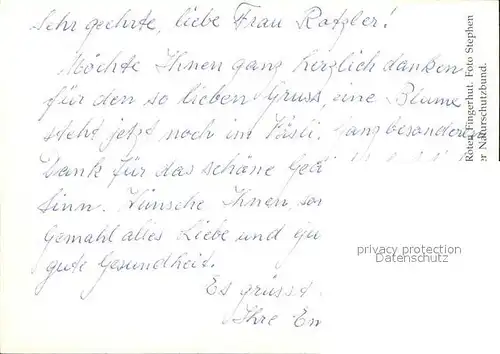 Sehr geehrte, liebe Frau Ratzler!
Möchte Ihnen ganz herzlich danken
für den so lieben Gruss, eine Blume
steht jetzt noch im Väsli. Ganz besonderen
Dank für das schöne Ged
Sinn. Wünsche Ihnen, so
Gemahl alles Liebe und
gute Gesundheit.
Es grüsst
Ihre Em
Roter Fingerhut. Foto Stephen
er Naturschutzbund.
privacy protection
Datenschutz